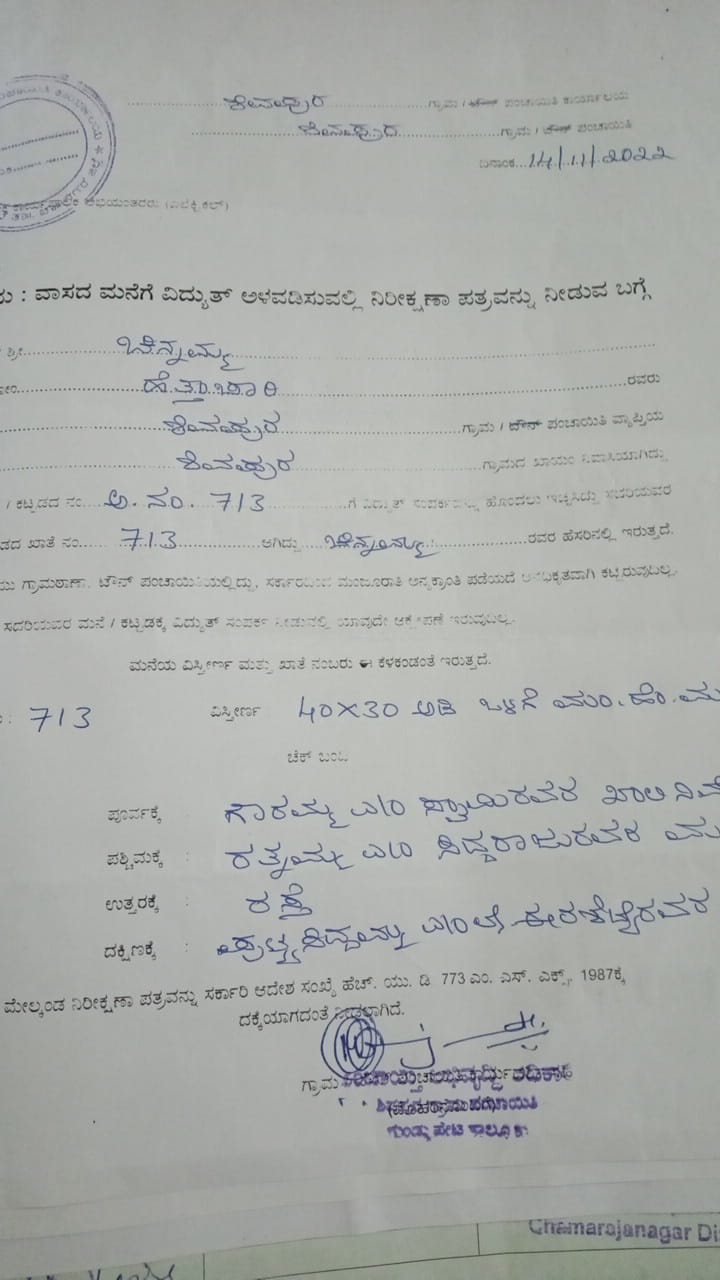 ಶಿವಪುರ ಗ್ರಾಮ / ಟೌನ್ ಪಂಚಾಯಿತಿ ಕಾರ್ಯಾಲಯ
ಶಿವಪುರ ಗ್ರಾಮ / ಟೌನ್ ಪಂಚಾಯಿತಿ
ದಿನಾಂಕ...14/11/2022
ಅಭಿಯಂತರರು (ಎಲೆಕ್ಟ್ರಿಕಲ್)
: ವಾಸದ ಮನೆಗೆ ವಿದ್ಯುತ್ ಅಳವಡಿಸುವಲ್ಲಿ ನಿರೀಕ್ಷಣಾ ಪತ್ರವನ್ನು ನೀಡುವ ಬಗ್ಗೆ
ಶ್ರೀ ಚಿನ್ನಮ್ಮ
ರವರು
ಶಿವಪುರ ಗ್ರಾಮ / ಟೌನ್ ಪಂಚಾಯಿತಿ ವ್ಯಾಪ್ತಿಯ
ಶಿವಪುರ ಗ್ರಾಮದ ಖಾಯಂ ನಿವಾಸಿಯಾಗಿದ್ದು
/ ಕಟ್ಟಡದ ನಂ. ಅ. ನಂ. 713 ಗೆ ವಿದ್ಯುತ್ ಸಂಪರ್ಕವನ್ನು ಹೊಂದಲು ಇಚ್ಛಿಸಿದ್ದು ಸದರಿಯವರ
ಖಾತೆ ನಂ. 713 ಆಗಿದ್ದು ಚಿನ್ನಮ್ಮ ರವರ ಹೆಸರಿನಲ್ಲಿ ಇರುತ್ತದೆ.
ಗ್ರಾಮಠಾಣಾ, ಟೌನ್ ಪಂಚಾಯಿತಿಯಲ್ಲಿದ್ದು, ಸರ್ಕಾರದಿಂದ ಮಂಜೂರಾತಿ ಅನ್ಯಕ್ರಾಂತಿ ಪಡೆಯದೆ ಅನಧಿಕೃತವಾಗಿ ಕಟ್ಟಿರುವುದಿಲ್ಲ.
ಸದರಿಯವರ ಮನೆ / ಕಟ್ಟಡಕ್ಕೆ ವಿದ್ಯುತ್ ಸಂಪರ್ಕ ನೀಡುವಲ್ಲಿ ಯಾವುದೇ ಆಕ್ಷೇಪಣೆ ಇರುವುದಿಲ್ಲ.
ಮನೆಯ ವಿಸ್ತೀರ್ಣ ಮತ್ತು ಖಾತೆ ನಂಬರು ಈ ಕೆಳಕಂಡಂತೆ ಇರುತ್ತದೆ.
: 713 ವಿಸ್ತೀರ್ಣ 40×30 ಅಡಿ ಒಳಗೆ ಮಂ. ಹೆಂ. ಮ
ಚೆಕ್ ಬಂದಿ
ಪೂರ್ವಕ್ಕೆ : ಗೌರಮ್ಮ
ಪಶ್ಚಿಮಕ್ಕೆ : ರತ್ನಮ್ಮ ಸಿದ್ದರಾಜುರವರ ಮ
ಉತ್ತರಕ್ಕೆ : ರಸ್ತೆ
ದಕ್ಷಿಣಕ್ಕೆ : ಪುಟ್ಟಸಿದ್ದಮ್ಮ
ಮೇಲ್ಕಂಡ ನಿರೀಕ್ಷಣಾ ಪತ್ರವನ್ನು ಸರ್ಕಾರಿ ಆದೇಶ ಸಂಖ್ಯೆ ಹೆಚ್. ಯು. ಡಿ 773 ಎಂ. ಎಸ್. ಎಕ್ಸ್. 1987ಕ್ಕೆ
ದಕ್ಕೆಯಾಗದಂತೆ ನೀಡಲಾಗಿದೆ.
ಗ್ರಾಮ
ಗುಂಡ್ಲುಪೇಟೆ ತಾಲ್ಲೂಕು
Chamarajanagar Di